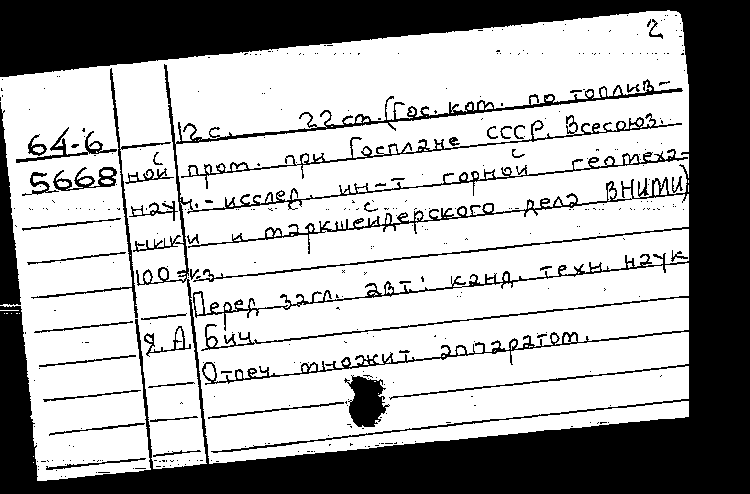 2
64-6 12 с. 22 см. (Гос. ком. по топлив-
5668 ной пром. при Госплане СССР. Всесоюз.
науч.-исслед. ин-т горной геомеха-
ники и маркшейдерского дела ВНИМИ)
100 экз.
Перед загл. авт.: канд. техн. наук
Я. А. Бич.
Отпеч. множит. аппаратом.